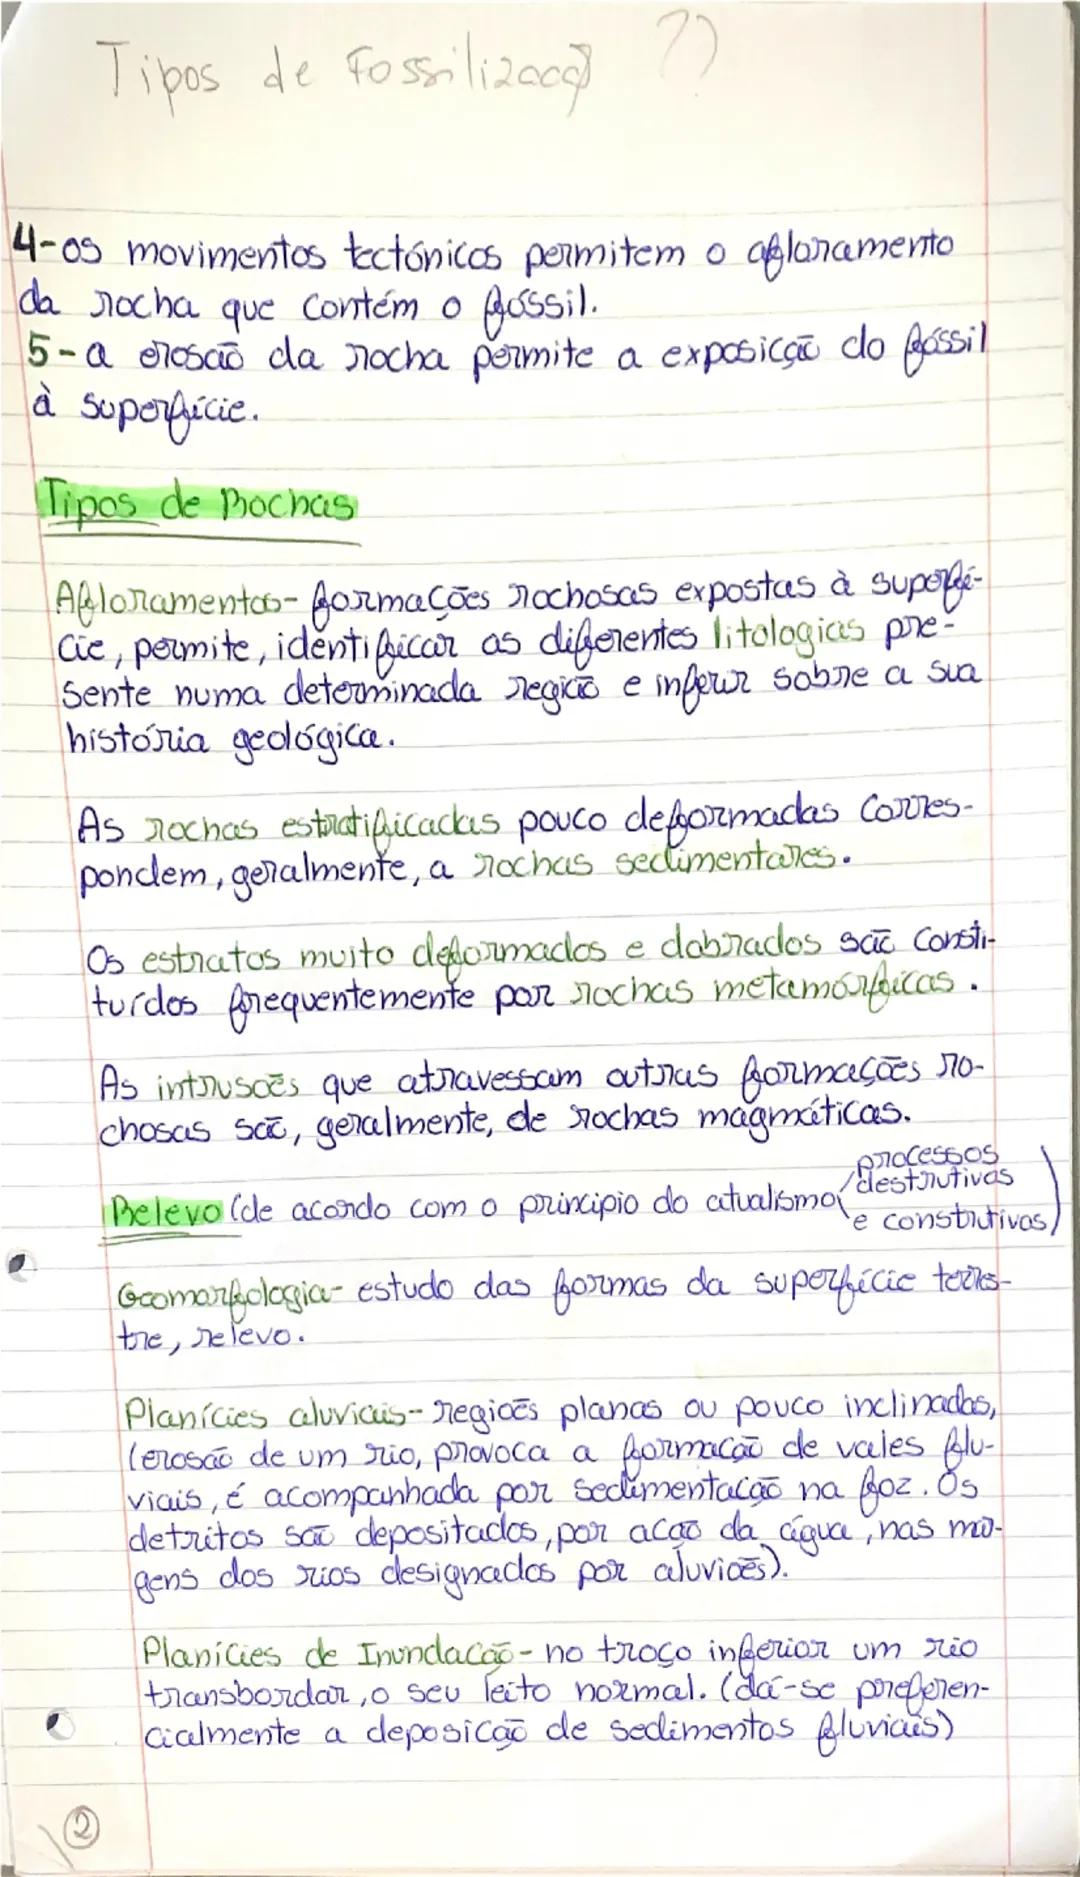 Tipos de Fossilização ??
4-os movimentos tectónicos permitem o afloramento
da rocha que contém o fóssil.
5-a erosão da rocha permite a exposição do fóssil
à superfície.
Tipos de Rochas
Afloramentos- formações rochosas expostas à superfí-
cie, permite, identificar as diferentes litologias pre-
sente numa determinada região e inferir sobre a sua
história geológica.
As rochas estratificadas pouco deformadas corres-
pondem, geralmente, a rochas sedimentares.
Os estratos muito deformados e dobrados são consti-
tuídos frequentemente por rochas metamórficas.
As intrusões que atravessam outras formações ro-
chosas são, geralmente, de rochas magmáticas.
Relevo (de acordo com o principio do atualismo
processos
destrutivos
e construtivos)
Geomorfologia- estudo das formas da superfície terres-
tre, relevo.
Planícies aluviais- regiões planas ou pouco inclinadas,
(erosão de um rio, provoca a formação de vales flu-
viais, é acompanhada por sedimentação na foz. Os
detritos são depositados, por acção da água, nas mar-
gens dos rios designados por aluviões).
Planícies de Inundação- no troço inferior um rio
transbordar, o seu leito normal. (dá-se preferen-
cialmente a deposição de sedimentos fluviais)
2